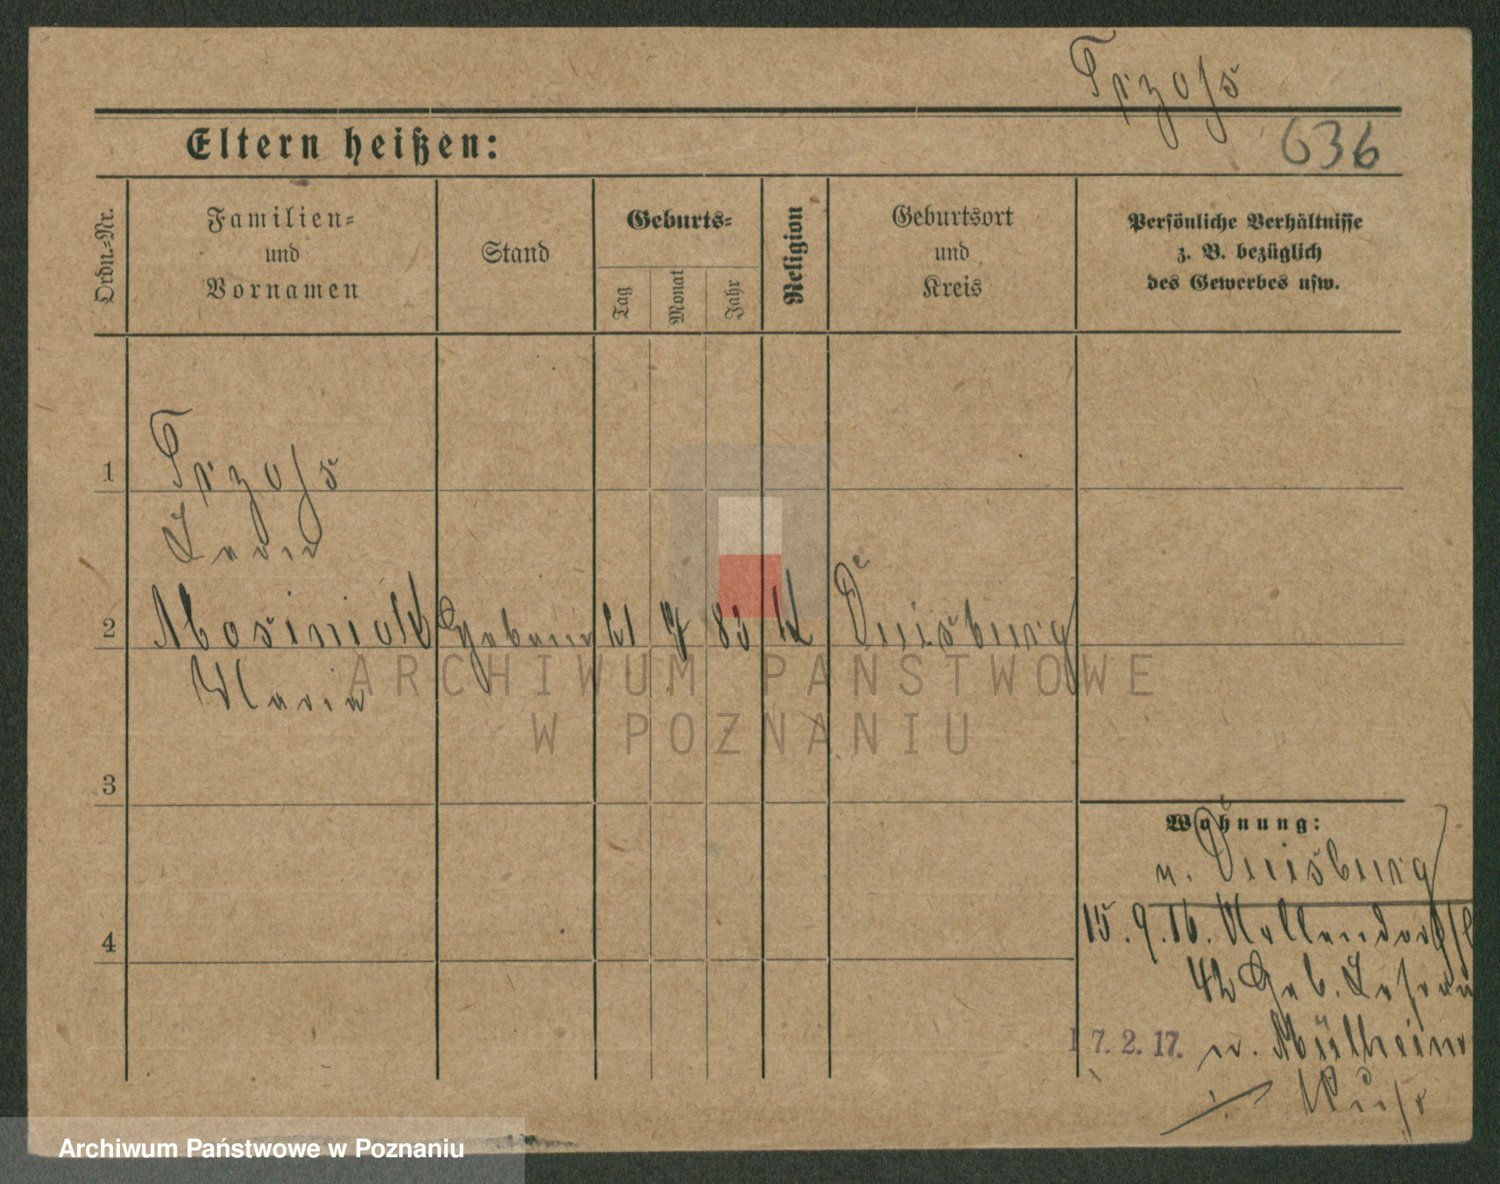 Trzoss
Eltern heißen:
636
Ordn.-Nr.
Familien-
und
Vornamen
Stand
Geburts-
Tag
Monat
Jahr
Religion
Geburtsort
und
Kreis
Persönliche Verhältnisse
z. B. bezüglich
des Gewerbes usw.
1
Trzoss
2
Mosiniak
21 7 83 k
Duisburg
Maria
ARCHIWUM PAŃSTWOWE
W POZNANIU
3
Wohnung:
n. Duisburg
4
15.9.16.
42 Geb.
17.2.17. n. Mülheim
Ruhr
Archiwum Państwowe w Poznaniu